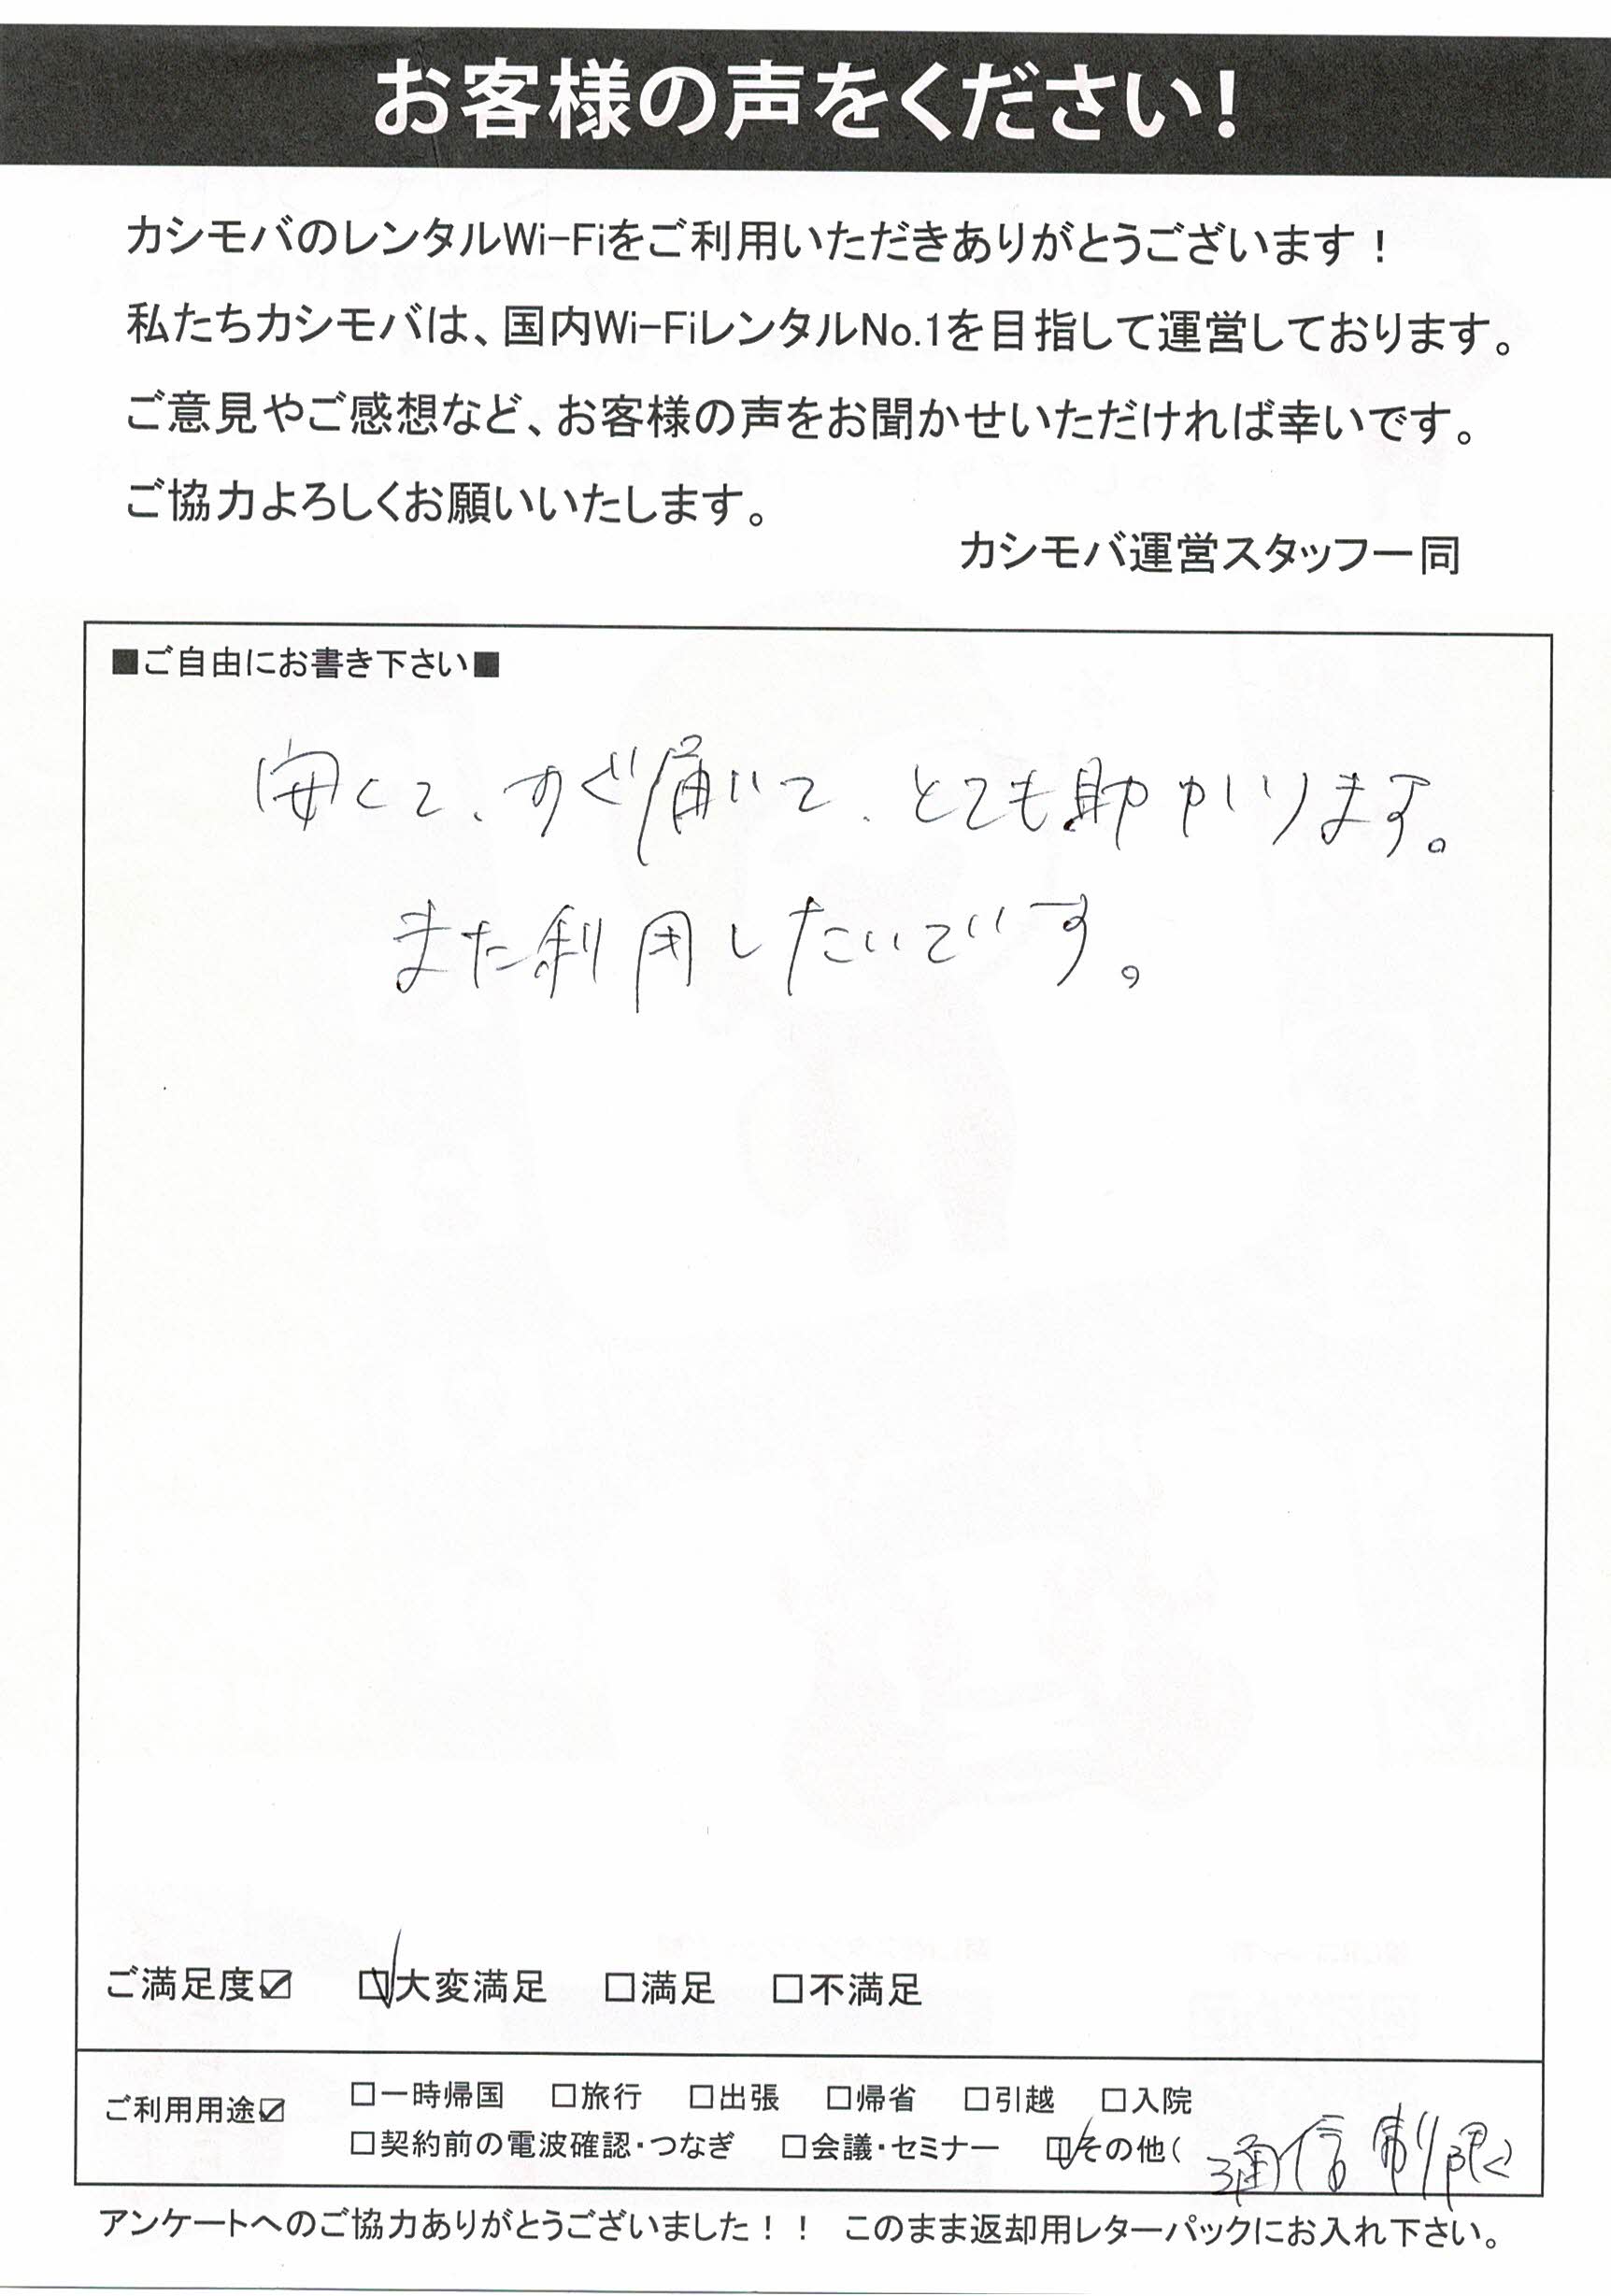 お客様の声をください!
カシモバのレンタルWi-Fiをご利用いただきありがとうございます！
私たちカシモバは、国内Wi-FiレンタルNo.1を目指して運営しております。
ご意見やご感想など、お客様の声をお聞かせいただければ幸いです。
ご協力よろしくお願いいたします。
カシモバ運営スタッフ一同
■ご自由にお書き下さい■
安くて、すぐ届いて、とても助かります。
また利用したいです。
ご満足度☑ ☑大変満足 □満足 □不満足
ご利用用途☑ □一時帰国 □旅行 □出張 □帰省 □引越 □入院
□契約前の電波確認・つなぎ □会議・セミナー ☑その他( 通信制限)
アンケートへのご協力ありがとうございました！！ このまま返却用レターパックにお入れ下さい。